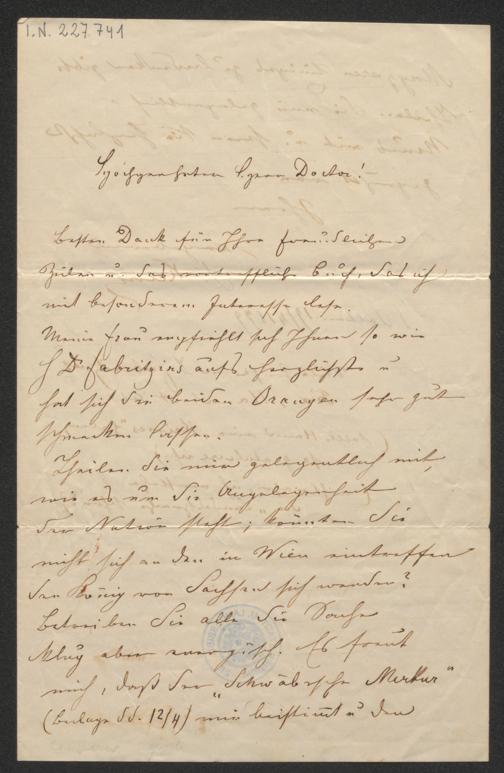 I.N. 227.741
Hochgeehrter Herr Doctor!
Besten Dank für Ihre freundlichen
Zeilen u. das vortreffliche Buch, das ich
mit besonderem Interesse lese.
Meine Frau empfiehlt sich Ihnen so wie
H Dr. Fabritzius aufs herzlichste u
hat sich die beiden Orangen sehr gut
schmecken lassen.
Theilen Sie mir gelegentlich mit,
wie es um die Angelegenheit
der Nation steht; könnten Sie
nicht sich an den in Wien eintreffen
den König von Sachsen sich wenden?
Betreiben Sie alle die Sache
klug aber energisch. Es freut
mich, daß der „Schwäbische Merkur“
(Beilage dd. 12/4) mir beistimmt u den